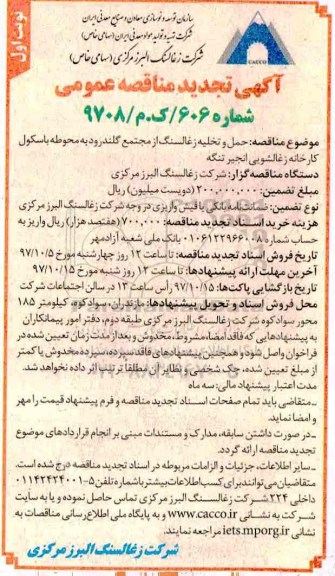 نوبت اول
سازمان توسعه و نوسازی معادن و صنایع معدنی ایران
شرکت تهیه و تولید مواد معدنی ایران (سهامی خاص)
شرکت زغالسنگ البرز مرکزی (سهامی خاص)
CACCO
آگهی تجدید مناقصه عمومی
شماره ۶۰۶/ک.م/۹۷۰۸
موضوع مناقصه: حمل و تخلیه زغالسنگ از مجتمع گلندرود به محوطه باسکول
کارخانه زغالشویی انجیر تنگه
دستگاه مناقصه گزار: شرکت زغالسنگ البرز مرکزی
مبلغ تضمین: ۲۰۰,۰۰۰,۰۰۰ (دویست میلیون) ریال
نوع تضمین: ضمانتنامه بانکی یا فیش واریزی در وجه شرکت زغالسنگ البرز مرکزی
هزینه خرید اسناد تجدید مناقصه: ۷۰۰,۰۰۰ (هفتصد هزار) ریال واریز به
حساب شماره ۰۱۰۶۱۲۲۹۶۶۰۰۸ بانک ملی شعبه آزادمهر
تاریخ فروش اسناد تجدید مناقصه: تا ساعت ۱۲ روز چهارشنبه مورخ ۹۷/۱۰/۵
آخرین مهلت ارائه پیشنهادها: تا ساعت ۱۲ روز شنبه مورخ ۹۷/۱۰/۱۵
تاریخ بازگشایی پاکت‌ها: ۹۷/۱۰/۱۵ رأس ساعت ۱۳ در سالن اجتماعات شرکت
محل فروش اسناد و تحویل پیشنهادها: مازندران، سوادکوه، کیلومتر ۱۸۵
محور سوادکوه شرکت زغالسنگ البرز مرکزی طبقه دوم، دفتر امور پیمانکاران
به پیشنهادهایی که فاقد امضاء، مشروط، مخدوش و بعد از مدت زمان تعیین شده در
فراخوان واصل شود و همچنین پیشنهادهای فاقد سپرده، سپرده مخدوش یا کمتر
از مبلغ تعیین شده، چک شخصی و نظایر آن مطلقا ترتیب اثر داده نخواهد شد.
مدت اعتبار پیشنهاد مالی: سه ماه
-متقاضی باید تمام صفحات اسناد تجدید مناقصه و فرم پیشنهاد قیمت را مهر
و امضا نماید.
-در صورت داشتن سابقه، مدارک و مستندات مبنی بر انجام قراردادهای موضوع
تجدید مناقصه ارائه گردد.
-سایر اطلاعات، جزئیات و الزامات مربوطه در اسناد تجدید مناقصه درج شده است.
متقاضیان می‌توانند برای کسب اطلاعات بیشتر با شماره تلفن ۵-۰۱۱۴۲۴۲۴۰۰۱
داخلی ۲۲۴ شرکت زغالسنگ البرز مرکزی تماس حاصل نموده و یا به سایت
شرکت به نشانی www.cacco.ir و به پایگاه ملی اطلاع رسانی مناقصات به
نشانی iets.mporg.ir مراجعه نمایند.
شرکت زغالسنگ البرز مرکزی